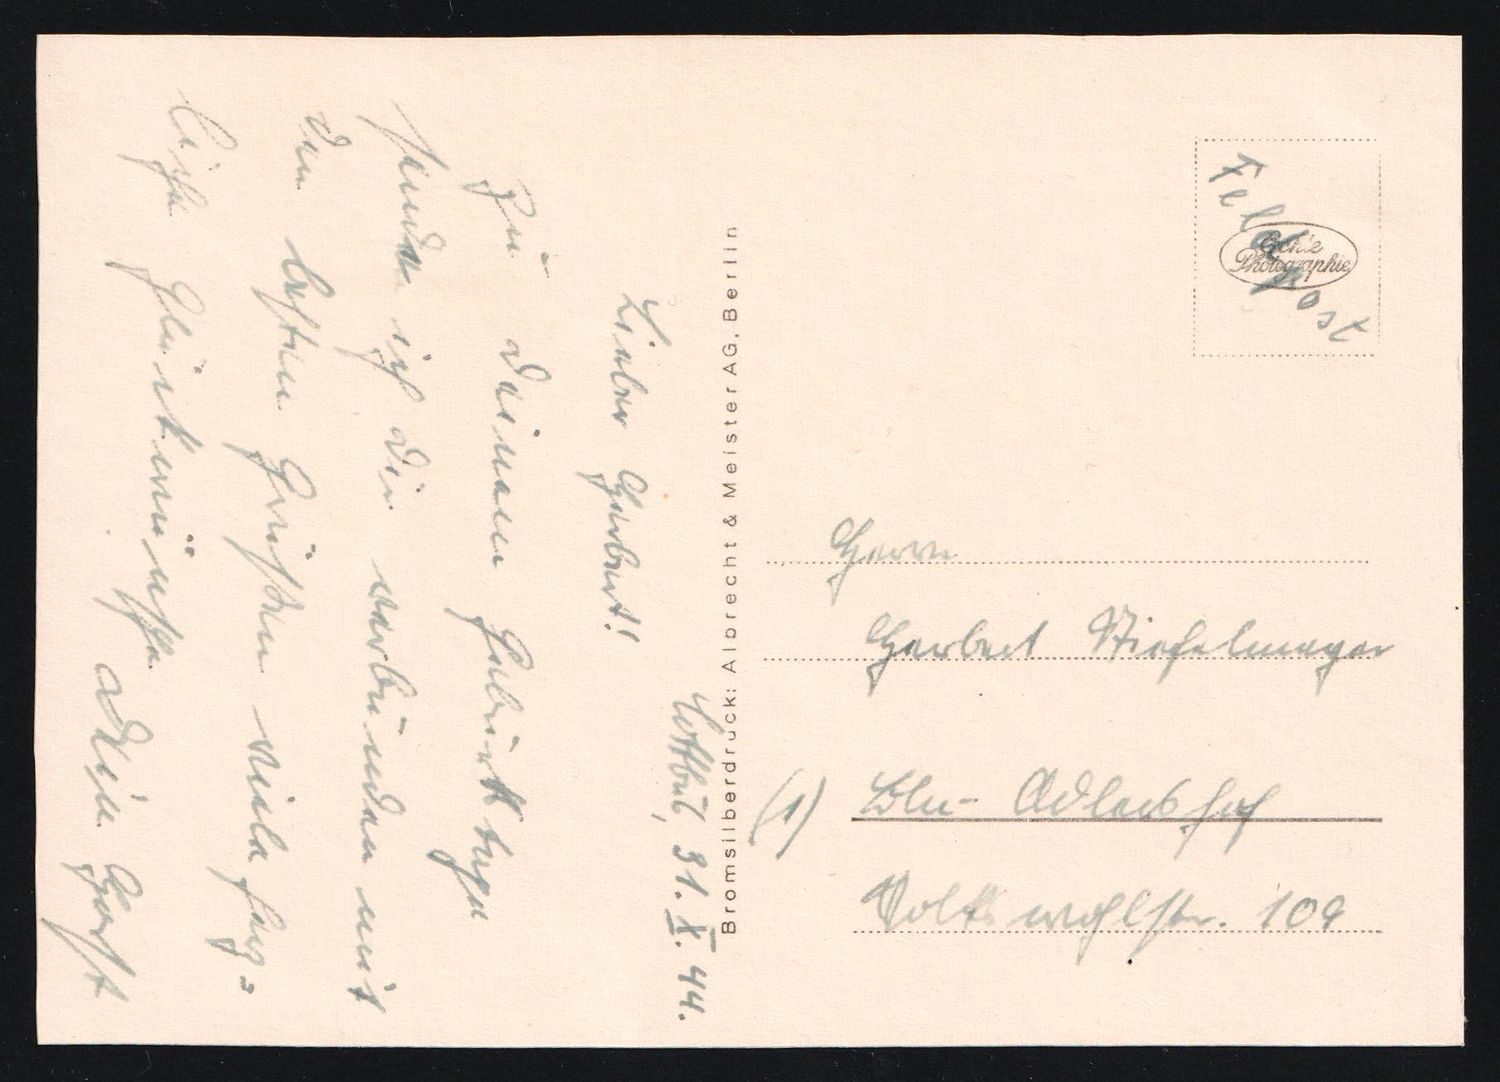 Cottbus, 31. X. 44.
Lieber Herbert!
Zu Deinem Geburtstage
sende ich Dir verbunden mit
den besten Grüßen viele herz-
liche Glückwünsche Dein Horst
Bromsilberdruck: Albrecht & Meister AG, Berlin
Feldpost
Echte
Photographie
Herrn
Herbert Stiefelmayer
(1) Bln- Adlershof
Volkswohlstr. 109